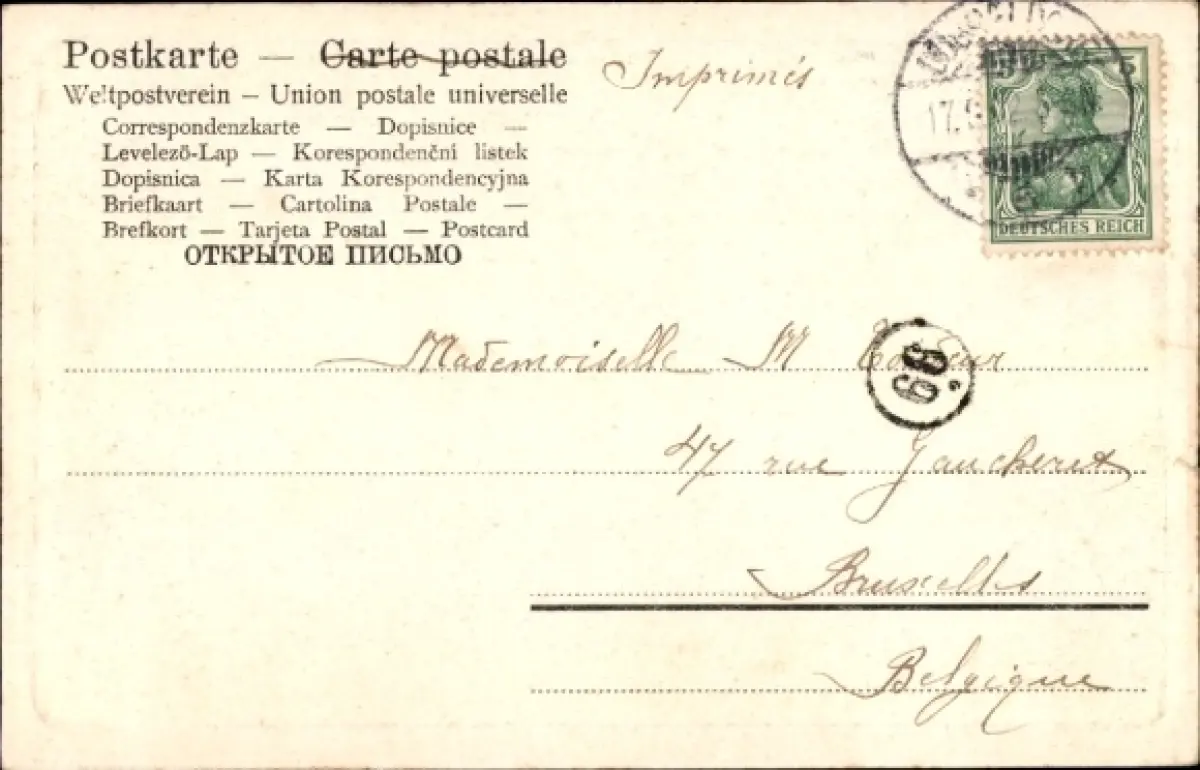 Postkarte — Carte postale
Imprimés
Weltpostverein – Union postale universelle
Correspondenzkarte — Dopisnice —
Levelező-Lap — Korespondenční listek
Dopisnica — Karta Korespondencyjna
Briefkaart — Cartolina Postale —
Brefkort — Tarjeta Postal — Postcard
ОТКРЫТОЕ ПИСЬМО
5
17.
DEUTSCHES REICH
Mademoiselle M
66
47 rue Gaucheret
Bruxelles
Belgique